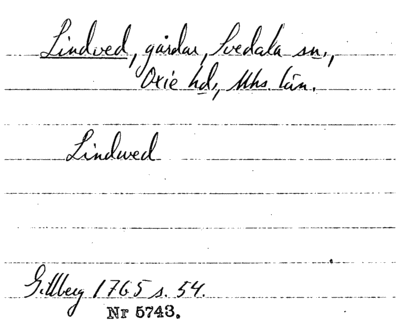 Lindved, gårdar, Svedala sn.,
Oxie hd., Mhs. län.
Lindwed
Gillberg 1765 s. 54.
Nr 5743.